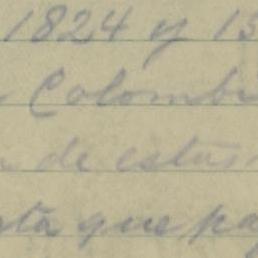 1824 y 15
Colombi
de estas
ta que pa